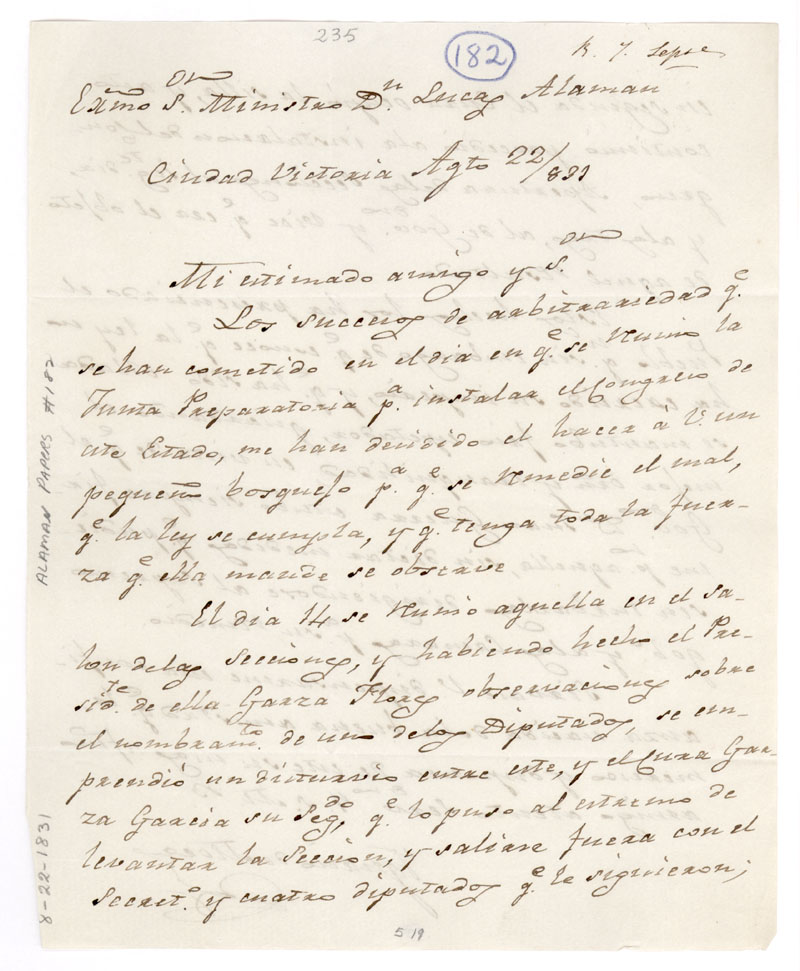 235
182
R. 7. Sepre
Exmo Sor. Ministro Dn. Lucas Alaman
Ciudad Victoria Agto 22/831
Mi estimado amigo y Sor.
Los sucesos de arbitrariedad qe.
se han cometido en el dia en qe. se reunio la
Junta Preparatoria pa. instalar el Congreso de
este Estado, me han decidido el hacer à V. un
pequeño bosquejo pa. qe. se remedie el mal,
qe. la ley se cumpla, y qe. tenga toda la fuer-
za qe. ella mande se observe
El dia 14 se reunio aquella en el sa-
lon delas secciones, y habiendo hecho el Pre-
sidte. de ella Garza Flores observaciones sobre
el nombramto. de uno delos Diputados, se em-
prendió un disturvio entre este, y el Cura Gar-
za Garcia su Segdo, qe. lo puso al estremo de
levantar la seccion, y salirse fuera con el
Secreto. y cuatro diputados qe. le siguieron;
ALAMAN PAPERS #182
8-22-1831
519